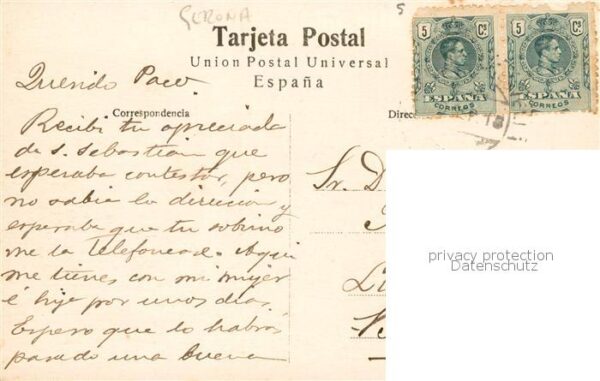 GERONA
5
Tarjeta Postal
Union Postal Universal
España
5 Cs
ESPAÑA
CORREOS
5 Cs
ESPAÑA
CORREOS
18
Querido Paco.
Correspondencia
Direc
Recibi tu apreciada
de S. Sebastian que
esperaba contestar, pero
no sabia la direccion y
esperaba que tu sobrino
me la telefonease. Aqui
me tienes con mi mujer
é hija por unos dias.
Espero que lo habras
pasado una buena
Sr. D
privacy protection
Datenschutz